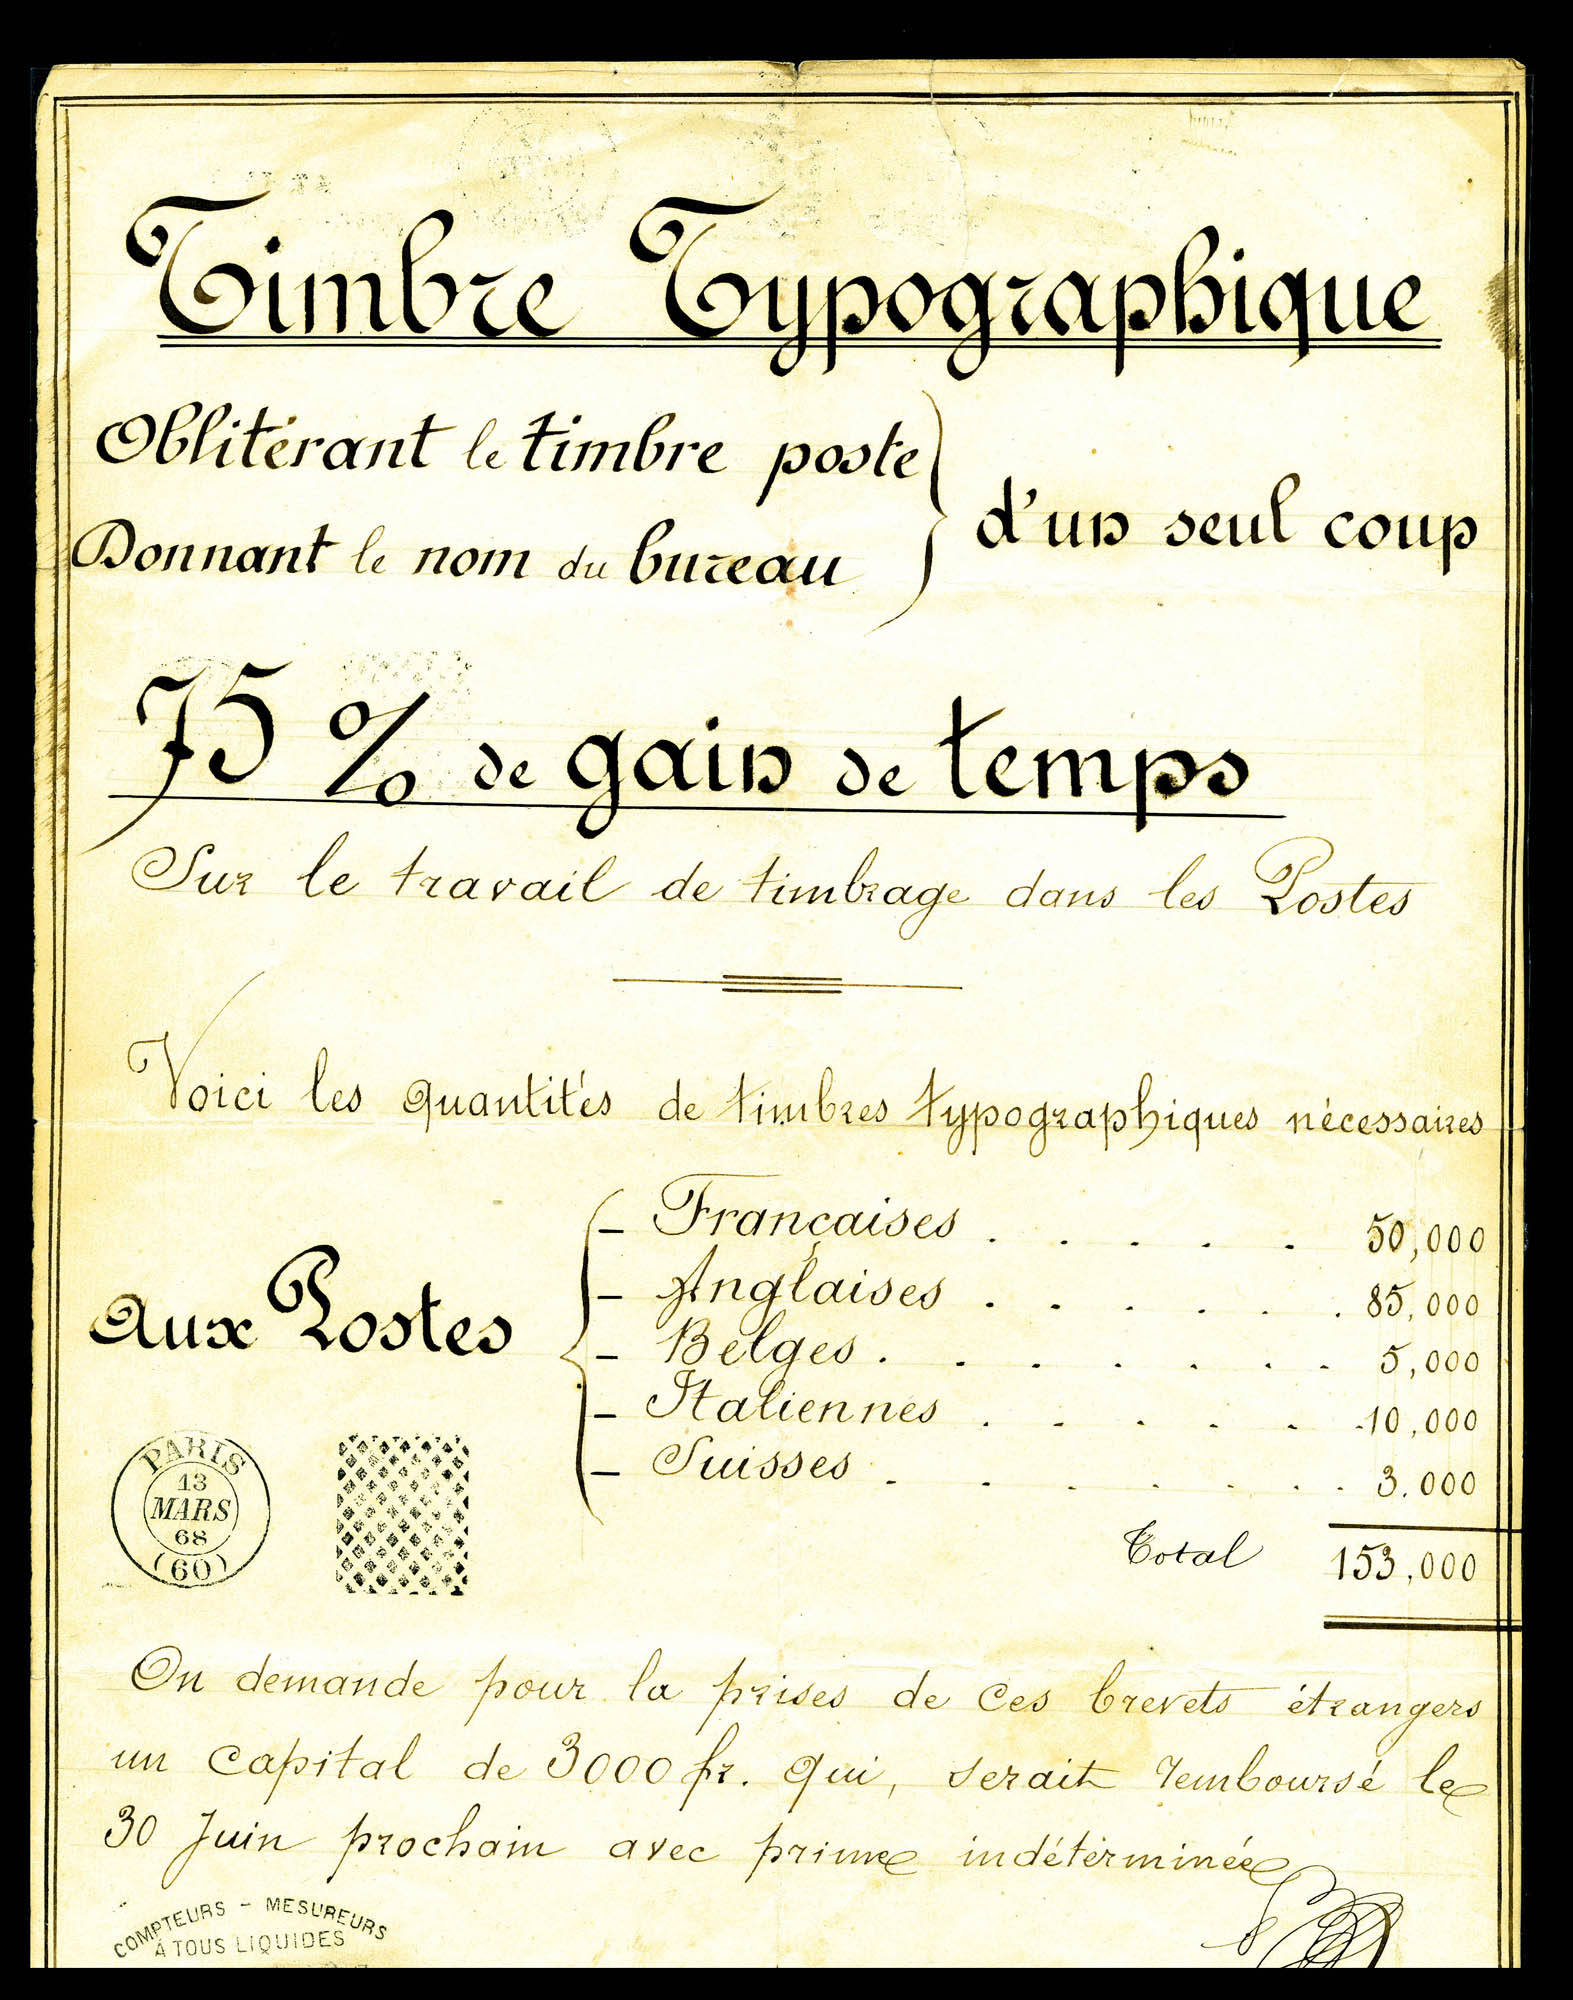 Timbre Typographique
Oblitérant le timbre poste
Donnant le nom du bureau
d'un seul coup
75 % de gain de temps
Sur le travail de timbrage dans les Postes
Voici les quantités de timbres typographiques nécessaires
Aux Postes
– Françaises . . . . . 50,000
– Anglaises . . . . . . 85,000
– Belges . . . . . . . 5,000
– Italiennes . . . . . . 10,000
– Suisses . . . . . . . 3.000
Total 153,000
PARIS
13
MARS
68
(60)
On demande pour la prises de ces brevets étrangers
un capital de 3000 fr. qui, serait remboursé le
30 Juin prochain avec prime indéterminée
COMPTEURS – MESUREURS
À TOUS LIQUIDES